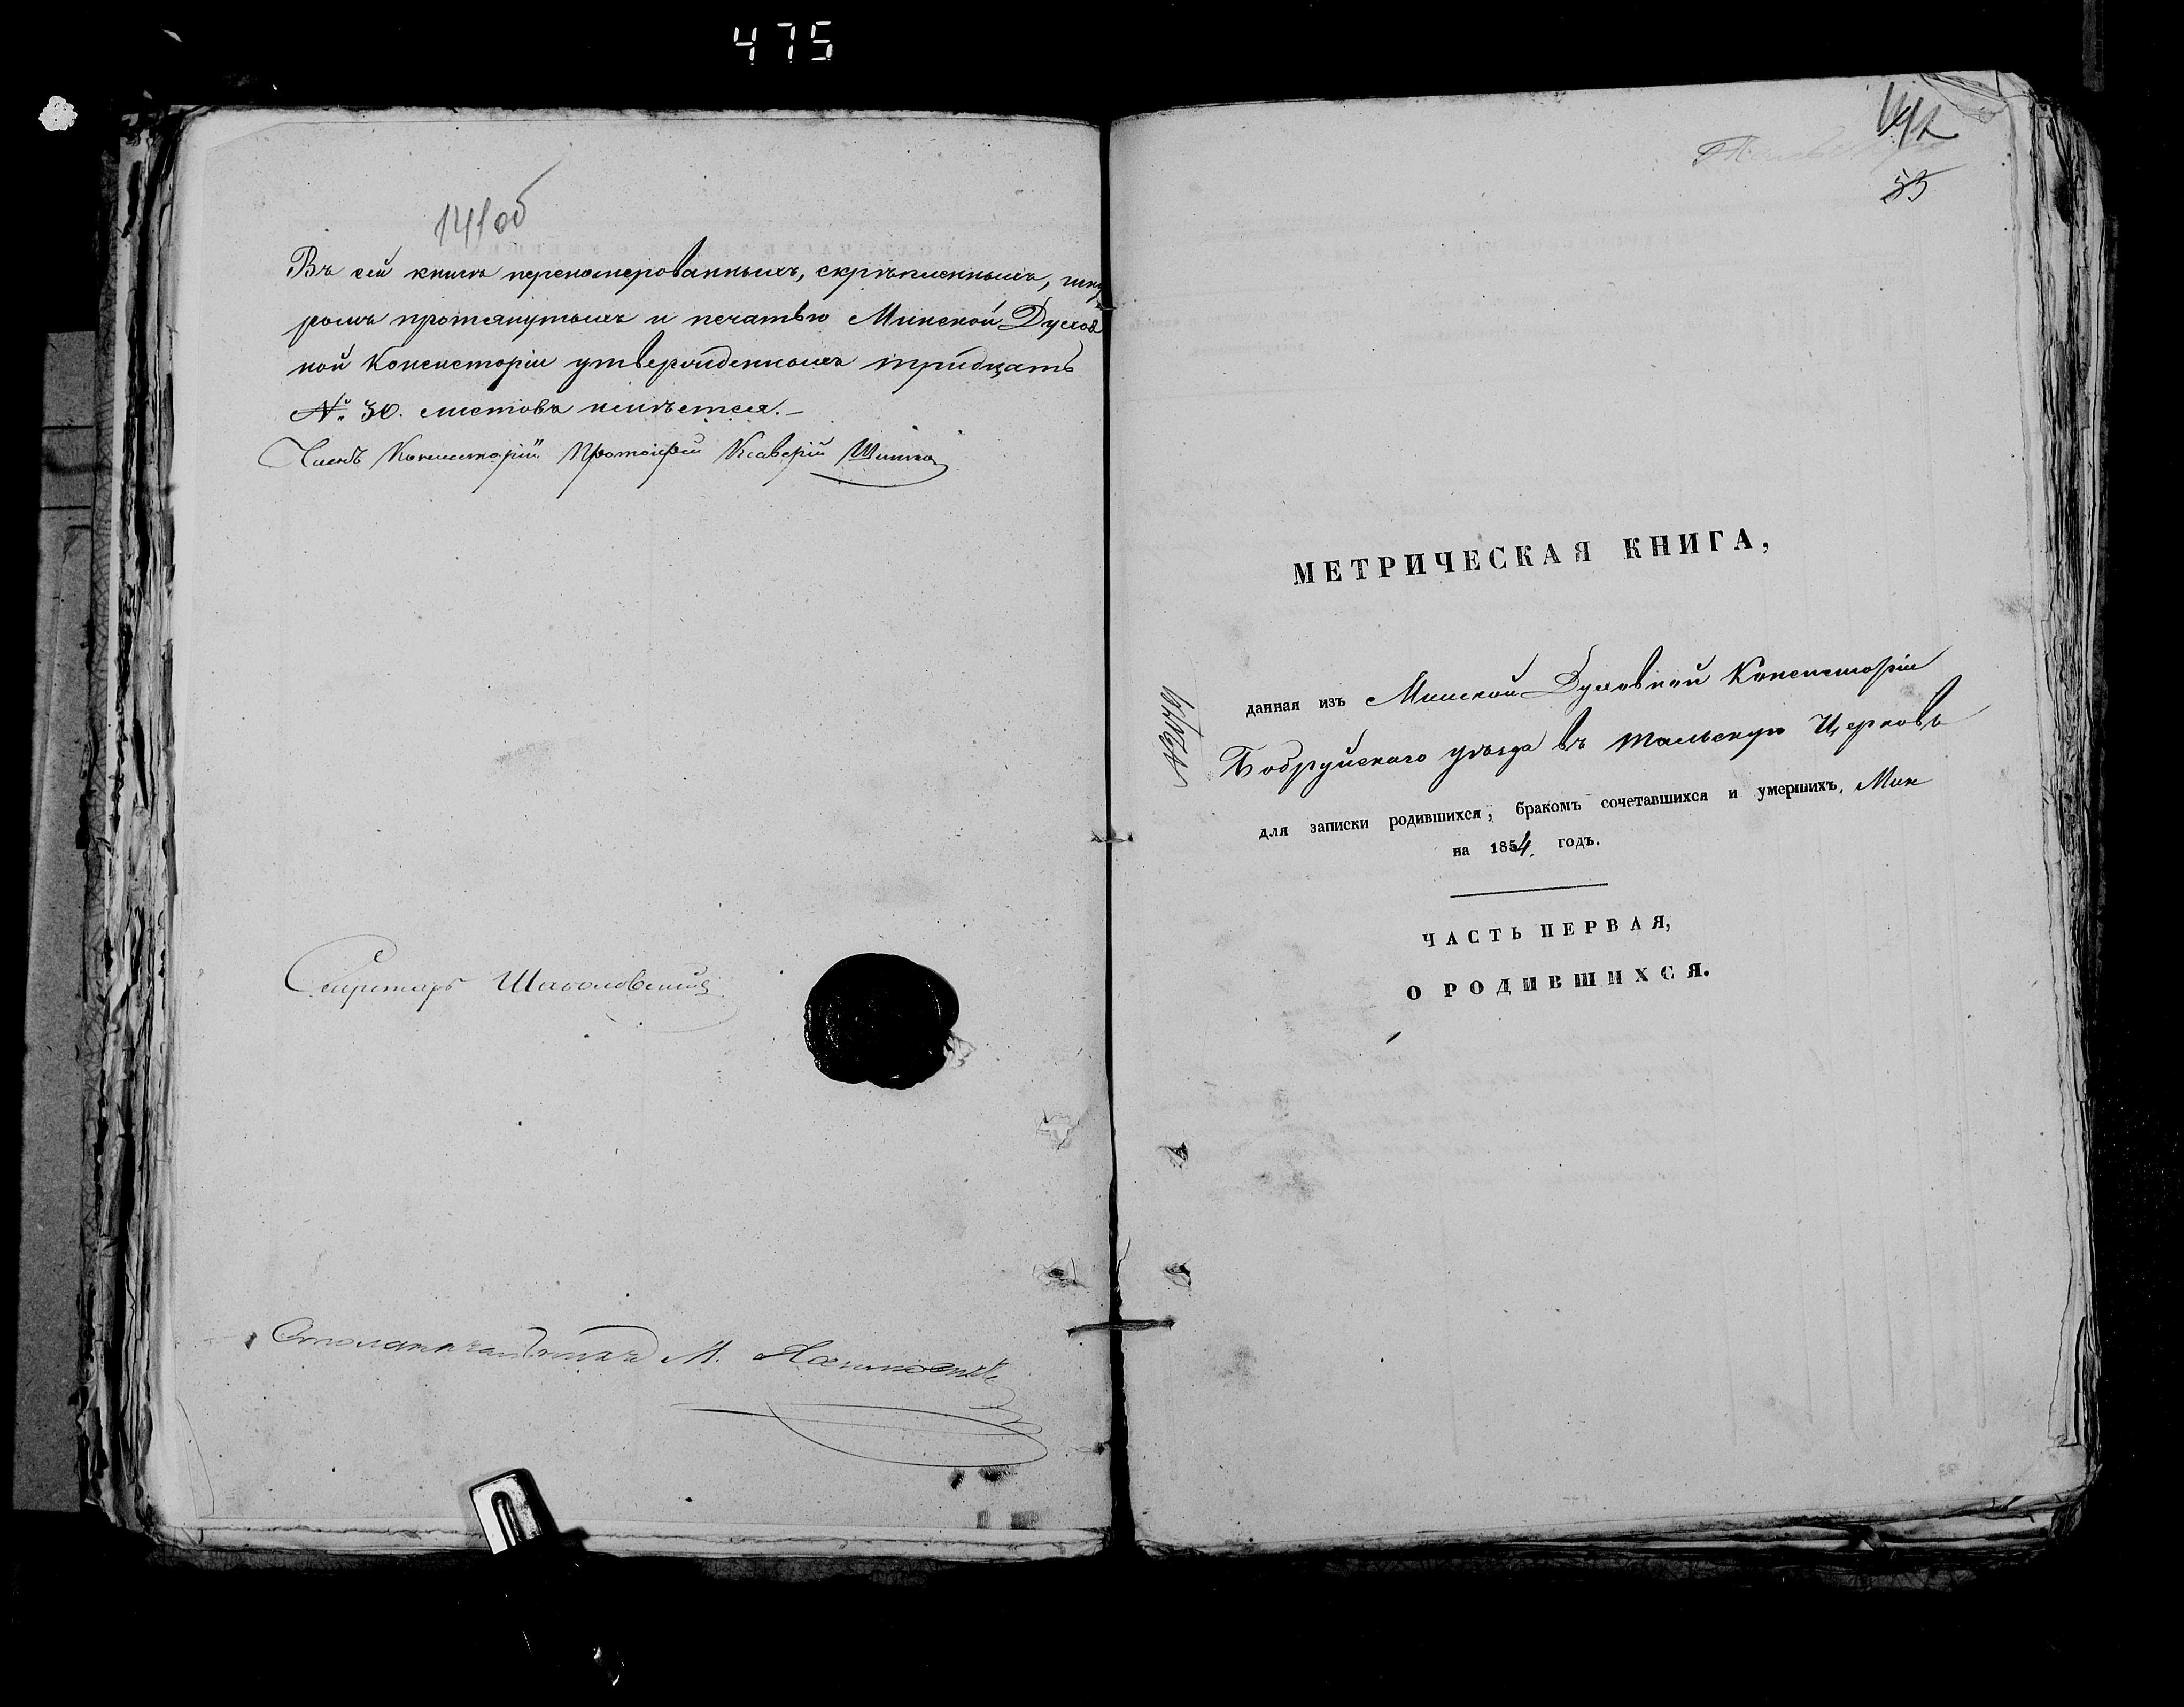 475
141об
Въ сей книгѣ перенумерованныхъ, скрѣпленныхъ, шну
ромъ протянутыхъ и печатью Минской Духов
ной Консисторіи утвержденныхъ тридцать
№ 30. листовъ имѣется.
Членъ Консисторіи Протоіерей Ксаверій
Секретарь
Столоначальникъ М.
142
55
МЕТРИЧЕСКАЯ КНИГА,
данная изъ Минской Духовной Консисторіи
Бобруйскаго уѣзда въ Тальскую Церковь
для записки родившихся, бракомъ сочетавшихся и умершихъ,
на 1854. годъ.
ЧАСТЬ ПЕРВАЯ,
О РОДИВШИХСЯ.